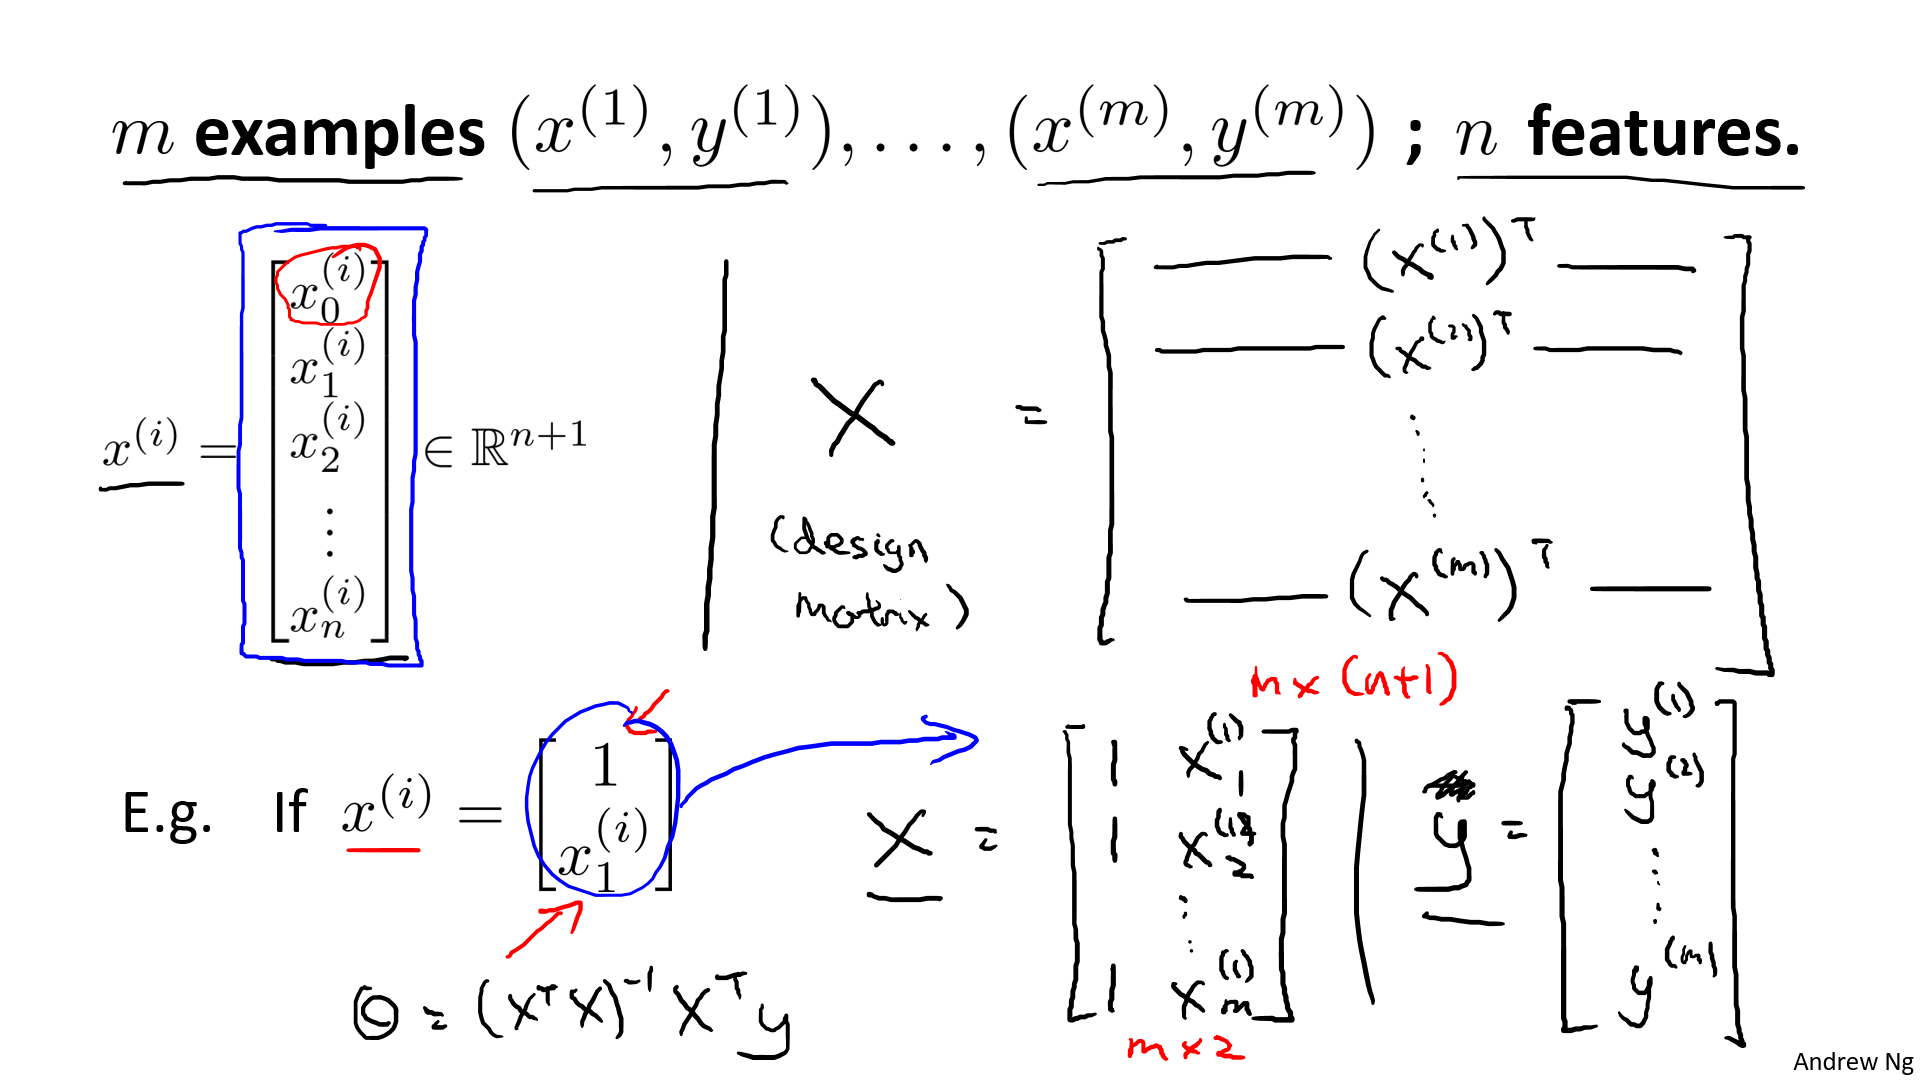 m examples (x^(1), y^(1)), . . . , (x^(m), y^(m)) ; n features.
x^(i) = [x_0^(i) x_1^(i) x_2^(i) ⋮ x_n^(i)] ∈ ℝ^(n+1)
X = [— (x^(1))^T — — (x^(2))^T — ⋮ — (x^(m))^T —]
(design
matrix)
m x (n+1)
E.g. If x^(i) = [1 x_1^(i)]
X = [1 x_1^(1) 1 x_2^(1) ⋮ 1 x_m^(1)]
m x 2
y = [y^(1) y^(2) ⋮ y^(m)]
Θ = (X^T X)^-1 X^T y
Andrew Ng